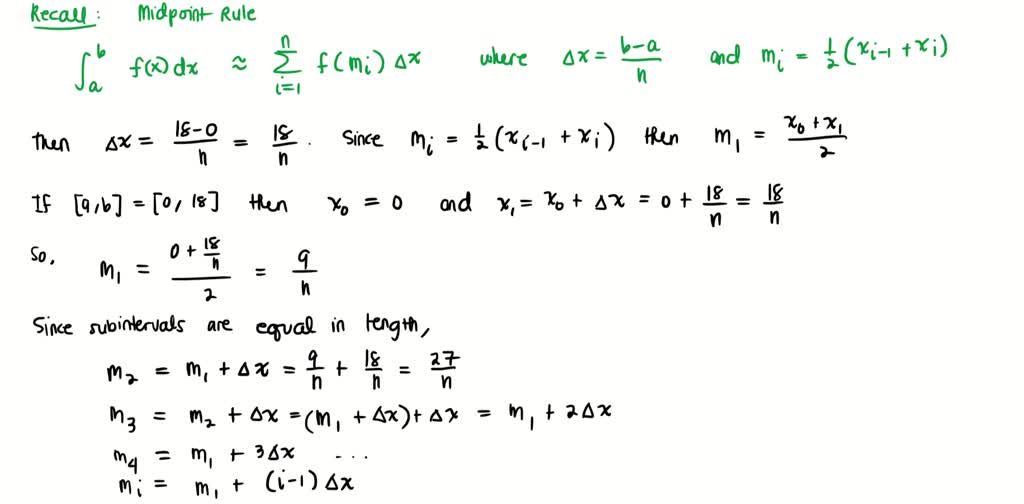 Recall: Midpoint Rule
∫_a^b f(x) dx ≈ Σ_{i=1}^n f(m_i) Δx where Δx = (b-a)/n and m_i = 1/2 (x_{i-1} + x_i)
Then Δx = (18-0)/n = 18/n. Since m_i = 1/2 (x_{i-1} + x_i) then m_1 = (x_0 + x_1)/2
If [a,b] = [0, 18] then x_0 = 0 and x_1 = x_0 + Δx = 0 + 18/n = 18/n
So, m_1 = (0 + 18/n)/2 = 9/n
Since subintervals are equal in length,
m_2 = m_1 + Δx = 9/n + 18/n = 27/n
m_3 = m_2 + Δx = (m_1 + Δx) + Δx = m_1 + 2Δx
m_4 = m_1 + 3Δx ...
m_i = m_1 + (i-1) Δx